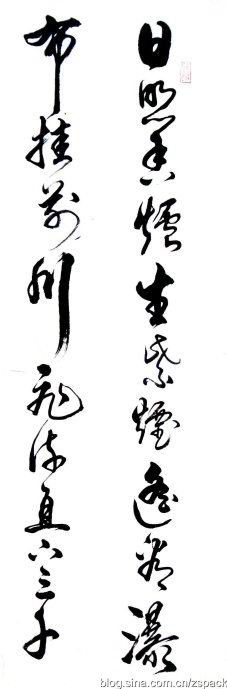 日照香爐生紫煙遙看瀑
布挂前川飛流直下三千
blog.sina.com.cn/zspack